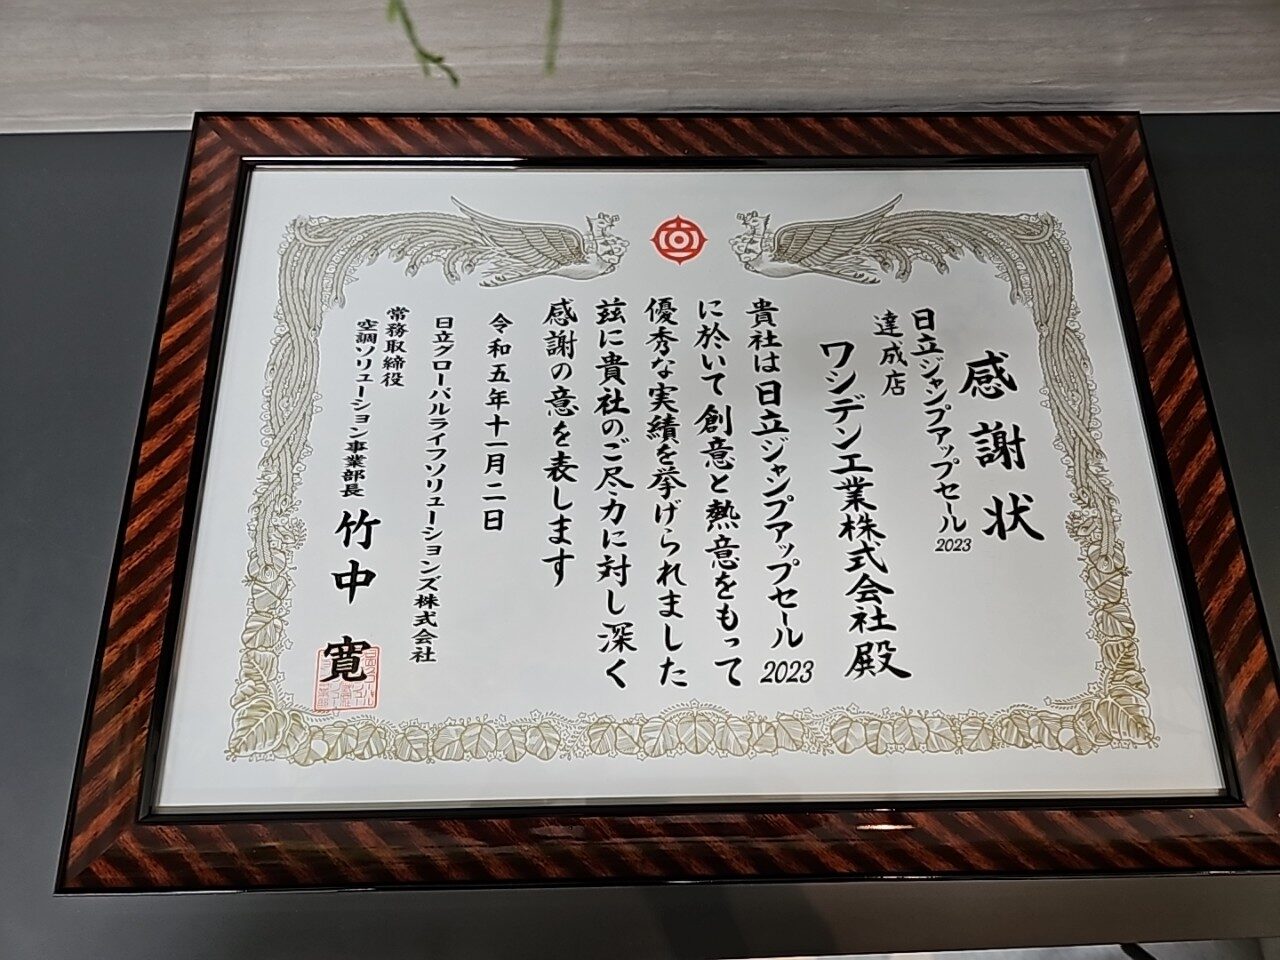 感謝状
日立ジャンプアップセール2023
達成店
ワシデン工業株式会社殿
貴社は日立ジャンプアップセール2023
に於いて創意と熱意をもって
優秀な実績を挙げられました
茲に貴社のご尽力に対し深く
感謝の意を表します
令和五年十一月二日
日立グローバルライフソリューションズ株式会社
常務取締役
空調ソリューション事業部長 竹中 寛